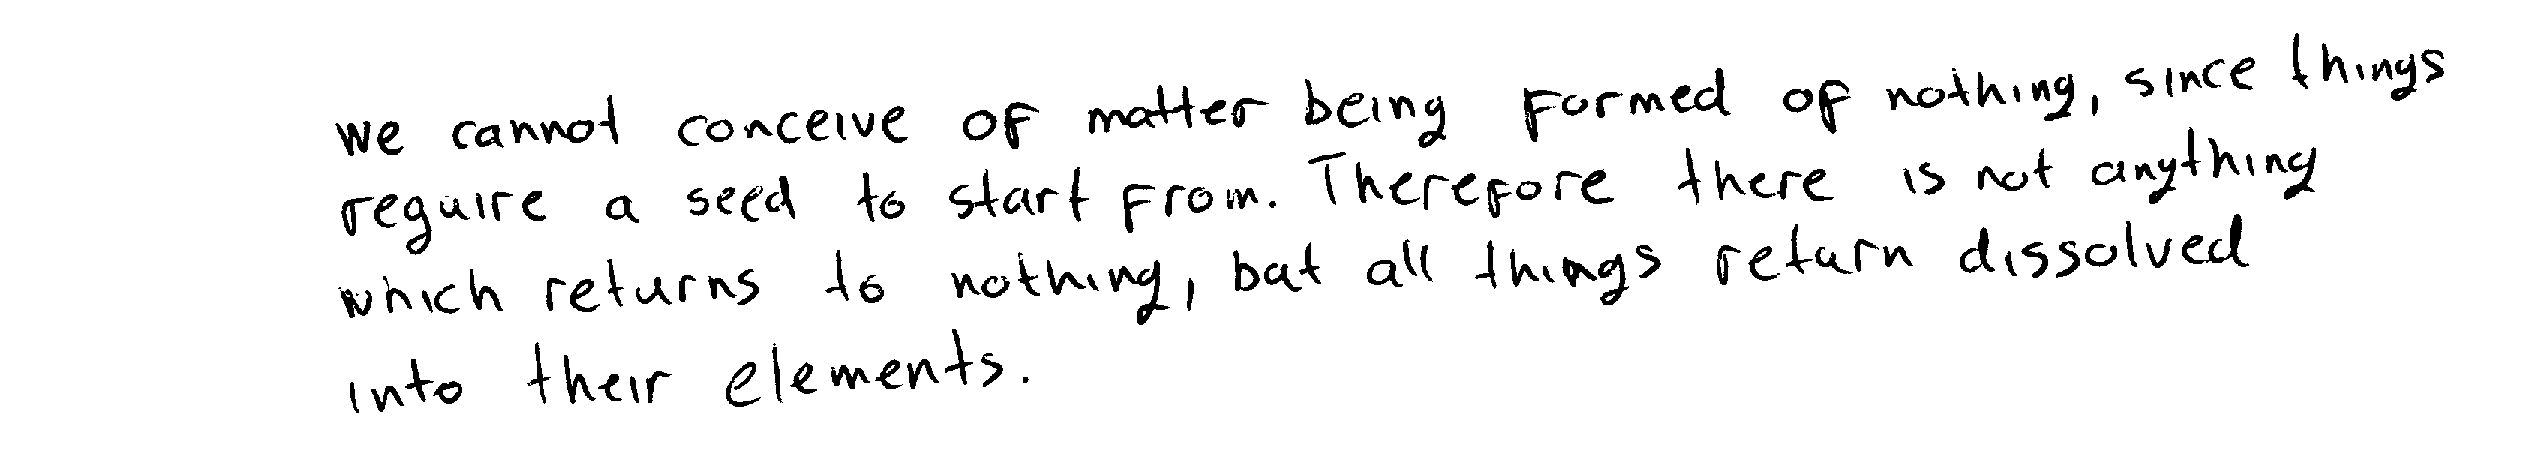 we cannot conceive of matter being formed of nothing, since things
require a seed to start from. Therefore there is not anything
which returns to nothing, but all things return dissolved
into their elements.